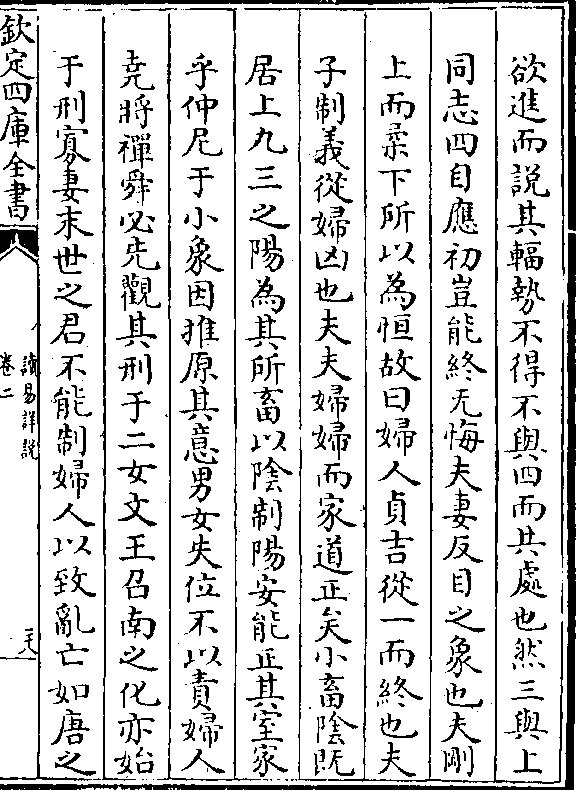 欲進而說其輻勢不得不與四而共處也然三與上
同志四自應初豈能終无悔夫妻反目之象也夫剛
上而柔下所以為恒故曰婦人貞吉從一而終也夫
子制義從婦凶也夫夫婦婦而家道正矣小畜陰既
居上九三之陽為其所畜以陰制陽安能正其室家
乎仲尼于小象因推原其意男女失位不以責婦人
堯將禪舜必先觀其刑于二女文王召南之化亦始
于刑寡妻末世之君不能制婦人以致亂亡如唐之
欽定四庫全書
讀易詳說
卷二
二十八